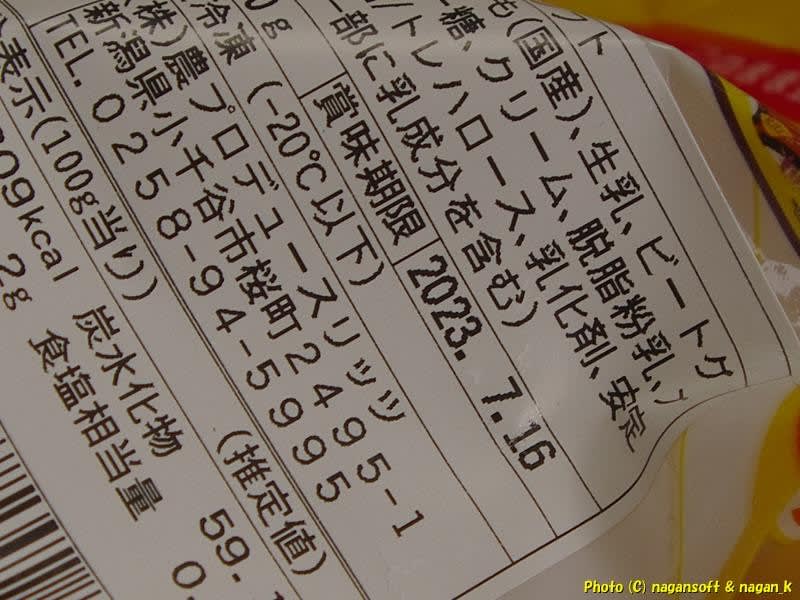 フト
も(国産)、生乳、ビートグ
糖、クリーム、脱脂粉乳、
/トレハロース、乳化剤、安定
一部に乳成分を含む)
賞味期限 2023. 7.16
0g
冷凍 (-20℃以下)
(株)農プロデュースリッツ
新潟県小千谷市桜町2495-1
TEL. 0258-94-5995
表示(100g当り) (推定値)
09kcal 炭水化物 59.
2g 食塩相当量 0.
Photo (C) nagansoft & nagan_k